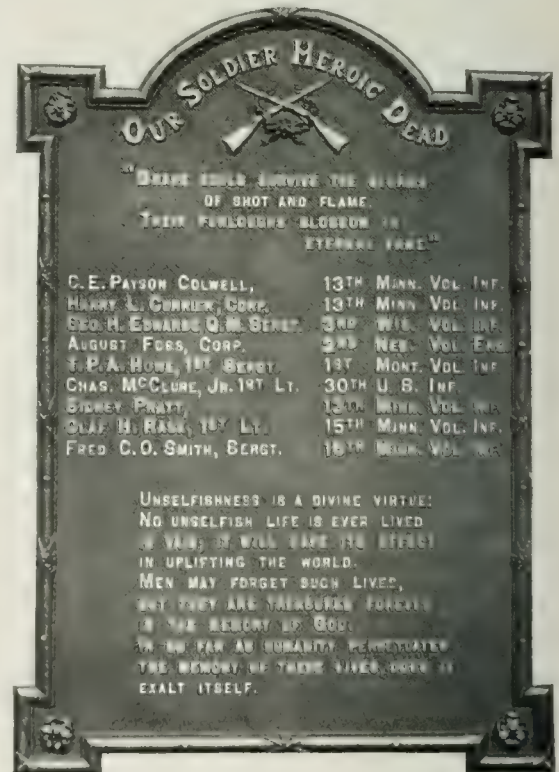 OUR SOLDIER HEROIC DEAD
"BRAVE SOULS SURVIVE THE
OF SHOT AND FLAME.
THEIR BLOSSOM IN
ETERNAL FAME"
C. E. PAYSON COLWELL, 13TH MINN. VOL. INF.
HARRY L. CURRIER, CORP. 13TH MINN. VOL. INF.
GEO. H. EDWARDS Q. M. SERGT. 3RD WIS. VOL. INF.
AUGUST FOSS, CORP. VOL. ENG.
T. P. A. HOWE, 1ST SERGT. 1ST MONT. VOL. INF.
CHAS. MCCLURE, JR. 1ST LT. 30TH U. S. INF.
SIDNEY PRATT, MINN. VOL. INF.
OLAF H. RASK, 1ST LT. 15TH MINN. VOL. INF.
FRED C. O. SMITH, SERGT. MINN. VOL. INF.
UNSELFISHNESS IS A DIVINE VIRTUE:
NO UNSELFISH LIFE IS EVER LIVED
IN VAIN; IT WILL HAVE ITS EFFECT
IN UPLIFTING THE WORLD.
MEN MAY FORGET SUCH LIVES,
BUT THEY ARE TREASURED FOREVER
IN THE MEMORY OF GOD.
IN SO FAR AS HUMANITY PERPETUATES
THE MEMORY OF THESE LIVES DOES IT
EXALT ITSELF.